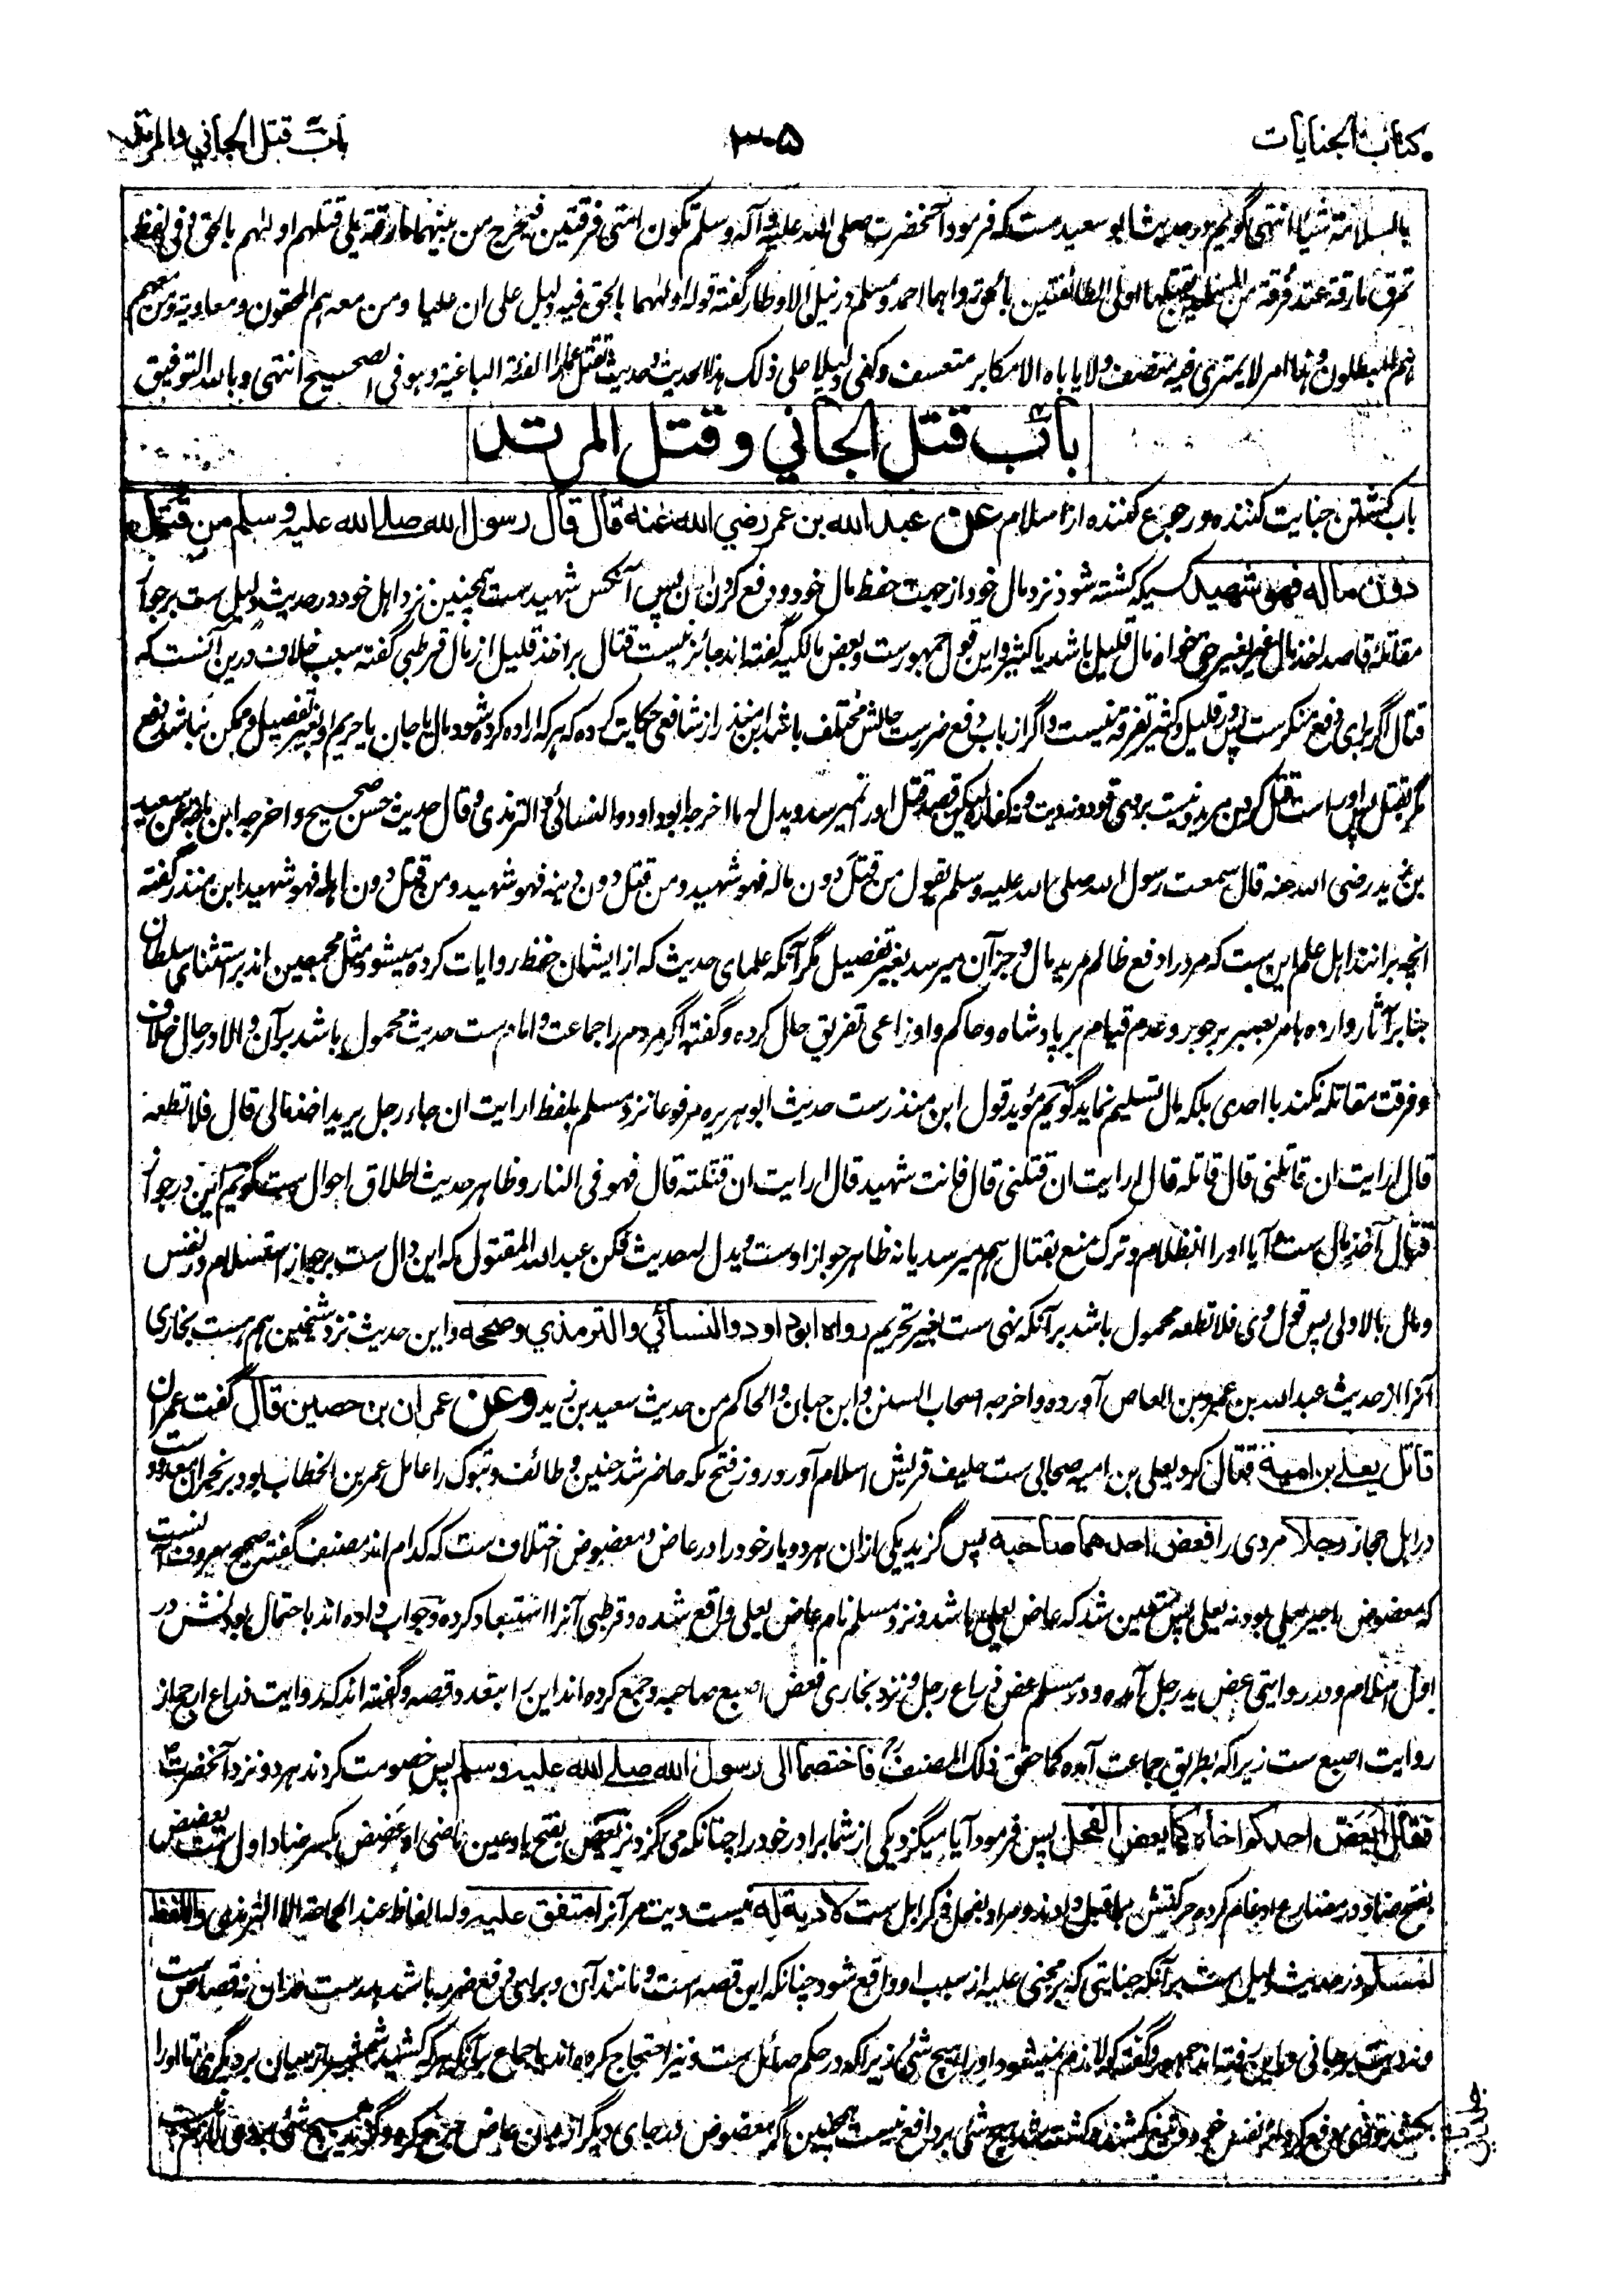 كتاب الجنايات
۳۰۵
باب قتل الجاني والمرتد
بالسلامة شيئا انتهى گويم ودر حديث ابو سعيد ست كه فرمود آنحضرت صلى الله عليه وآله وسلم تكون امتى فرقتين فيخرج من بينهما مارقة يلى قتلهم اولهم بالحق وفى لفظ
تمرق مارقة عند فرقة من المسلمين يقتلها اولى الطائفتين بالحق رواهما احمد ومسلم ودر نيل الاوطار گفته قوله اولهما بالحق فيه دليل على ان عليا ومن معه هم المحقون ومعاوية ومن معهم
هم المبطلون وهذا امر لا يمترى فيه منصف ولا ياباه الا مكابر متعسف وكفى دليلا على ذلك هذا الحديث وحديث تقتل عمارا الفئة الباغية وهو فى الصحيح انتهى وبالله التوفيق
باب قتل الجاني وقتل المرتد
باب كشتن جنايت كننده ورجوع كننده از اسلام عن عبد الله بن عمر رضي الله عنه قال قال رسول الله صلى الله عليه وسلم من قتل
دون ماله فهو شهيد كسيكه كشته شود نزد مال خود از جهت حفظ مال خود ودفع كردن از ان پس آنكس شهيد ست همچنين نزد اهل خود ودر حديث دليل ست بر جواز
مقاتلهٔ قاصد اخذ مال غير بغير حق خواه مال قليل باشد يا كثير واين قول جمهور ست وبعض مالكيه گفته اند جائز نيست قتال بر اخذ قليل از مال قرطبى گفته سبب خلاف درين آنست كه
قتال اگر براى دفع منكر ست پس در قليل وكثير تفرقه نيست واگر از باب دفع ضرر ست حالش مختلف باشد ابن منذر از شافعى حكايت كرده كه هر كه اراده كرده شود مال يا جان يا حريم او بغير تفصيل وممكن نباشد دفع
مگر بقتل پس او راست قتل كردن مريد ونيست بر وى قود ونه ديت ونه كفاره ليكن قصد قتل او را نميرسد ويدل له ما اخرجه ابو داود والنسائى والترمذى وقال حديث حسن صحيح واخرجه ابن ماجه عن سعيد
بن زيد رضى الله عنه قال سمعت رسول الله صلى الله عليه وسلم يقول من قتل دون ماله فهو شهيد ومن قتل دون دينه فهو شهيد ومن قتل دون اهله فهو شهيد ابن منذر گفته
انچه برانند اهل علم اين ست كه مرد را دفع ظالم مريد مال وجز آن ميرسد بغير تفصيل مگر آنكه علماى حديث كه از ايشان حفظ روايات كرده ميشود مثل مجمعين اند بر استثناى سلطان
بنا بر آثار وارده بامر بصبر بر جور وعدم قيام بر پادشاه وحاكم واوزاعى تفريق حال كرده وگفته اگر مردم را جماعت وامام ست حديث محمول باشد بر آن والا در حال خلاف
وفرقت مقاتله نكند با احدى بلكه مال تسليم نمايد گويم مؤيد قول ابن منذر ست حديث ابو هريره مرفوعا نزد مسلم بلفظ ارايت ان جاء رجل يريد اخذ مالى قال فلا تعطه
قال ارايت ان قاتلنى قال قاتله قال ارايت ان قتلنى قال فانت شهيد قال ارايت ان قتلته قال فهو فى النار وظاهر حديث اطلاق احوال ست گويم اين در جواز
قتال آخذ مال ست آيا او را انظلام وترك منع بقتال هم ميرسد يا نه ظاهر جواز اوست ويدل له حديث فكن عبد الله المقتول كه اين دال ست بر جواز استسلام در نفس
ومال بالاولى پس قول وى فلا تعطه محمول باشد بر آنكه نهى ست لغير تحريم رواه ابو داود والنسائي والترمذي وصححه واين حديث نزد شيخين هم هست بخارى
آنرا از حديث عبد الله بن عمرو بن العاص آورده واخرجه اصحاب السنن وابن حبان والحاكم من حديث سعيد بن زيد وعن عمران بن حصين قال گفت عمران
قاتل يعلى بن امية قتال كرد يعلى بن اميه صحابى ست حليف قريش اسلام آورد روز فتح مكه حاضر شد حنين وطائف وتبوك را عامل عمر بن الخطاب بود بر نجران معدود ست
در اهل حجاز رجلا مردى را فعض احدهما صاحبه پس گزيد يكى از ان هر دو يار خود را در عاض ومعضوض اختلاف ست كه كدام اند مصنف گفته صحيح معروف آنست
كه معضوض اجير يعلى بود نه يعلى پس متعين شد كه عاض يعلى باشد ونزد مسلم نام عاض يعلى واقع شده وقرطبى آنرا استبعاد كرده وجواب داده اند باحتمال بودنش در
اول اسلام ودر روايتى بعض يد رجل آمده ودر مسلم عض ذراع رجل ونزد بخارى فعض اصبع صاحبه وجمع كرده اند اين را بتعدد قصه وگفته اند كه روايت ذراع ارجح از
روايت اصبع ست زيرا كه بطريق جماعت آمده كما حقق ذلك المصنف رح فاختصما الى رسول الله صلى الله عليه وسلم پس خصومت كردند هر دو نزد آنحضرت
فقال ايعض احدكم اخاه كما يعض الفحل پس فرمود آيا ميگزد يكى از شما برادر خود را چنانكه مى گزد نر يعض بفتح يا وعين ماضى او عضض بكسر ضاد اول ست يعضض
بفتح ضاد ودر مضارع ادغام كرده حركتش بما قبل دادند ومراد بفحل نر ابل ست لا دية له نيست ديت مر آنرا متفق عليه وله الفاظ عند الجماعة الا الترمذي واللفظ
لمسلم ودر حديث دليل ست بر آنكه جنايتى كه بر مجنى عليه از سبب او واقع شود چنانكه اين قصه است ومانند آن وبراى دفع ضرر باشد هدر ست دران نه قصاص ست
ونه ديت بر جانى وباين رفته اند جمهور وگفته كه لازم نميشود او را هيچ شئ زيرا كه در حكم صائل ست ونيز احتجاج كرده اند باجماع بر آنكه هر كه كشيد شمشير از ميان بر ديگرى تا او را
بكشد وى دفع كرد از نفس خود كشنده كشته شد هيچ شئ بر دافع نيست همچنين اگر معضوض جاى ديگر از بدن عاض جرح كرد هيچ شئ بر وى لازم نيست